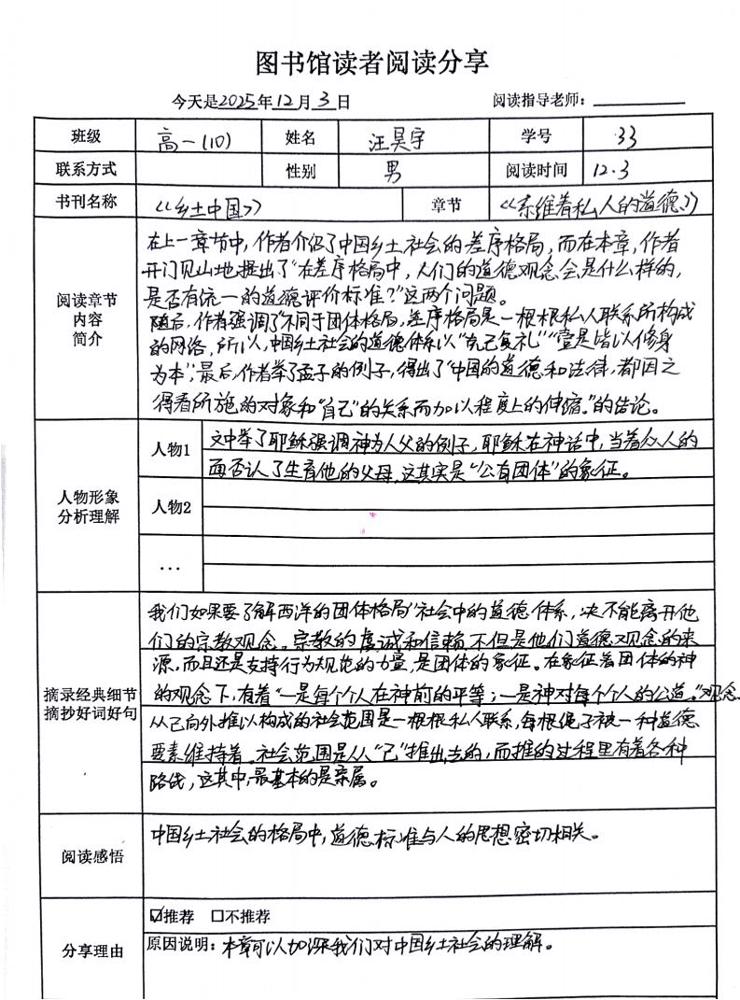 图书馆读者阅读分享
今天是2025年12月3日 阅读指导老师：
班级 高一(10) 姓名 汪昊宇 学号 33
联系方式 性别 男 阅读时间 12.3
书刊名称 《乡土中国》 章节 《系维着私人的道德》
阅读章节
内容
简介
在上一章节中，作者介绍了中国乡土社会的差序格局，而在本章，作者
开门见山地提出了“在差序格局中，人们的道德观念会是什么样的，
是否有统一的道德评价标准？”这两个问题。
随后，作者强调了不同于团体格局，差序格局是一根根私人联系所构成
的网络，所以，中国乡土社会的道德体系以“克己复礼”“壹是皆以修身
为本”，最后，作者举了孟子的例子，得出了“中国的道德和法律，都因之
得看所施的对象和“自己”的关系而加以程度上的伸缩。”的结论。
人物形象
分析理解
人物1
文中举了耶稣强调神为人父的例子，耶稣在神话中，当着众人的
面否认了生育他的父母，这其实是“公有团体”的象征。
人物2
…
摘录经典细节
摘抄好词好句
我们如果要了解西洋的“团体格局”社会中的道德体系，决不能离开他
们的宗教观念。宗教的虔诚和信赖不但是他们道德观念的来
源，而且还是支持行为规范的力量，是团体的象征。在象征着团体的神
的观念下，有着“一是每个个人在神前的平等；一是神对每个个人的公道。”观念
从己向外推以构成的社会范围是一根根私人联系，每根绳子被一种道德
要素维持着。社会范围是从“己”推出去的，而推的过程里有着各种
路线，这其中，最基本的是亲属。
阅读感悟
中国乡土社会的格局中，道德标准与人的思想密切相关。
分享理由
☑推荐 □不推荐
原因说明：本章可以加深我们对中国乡土社会的理解。